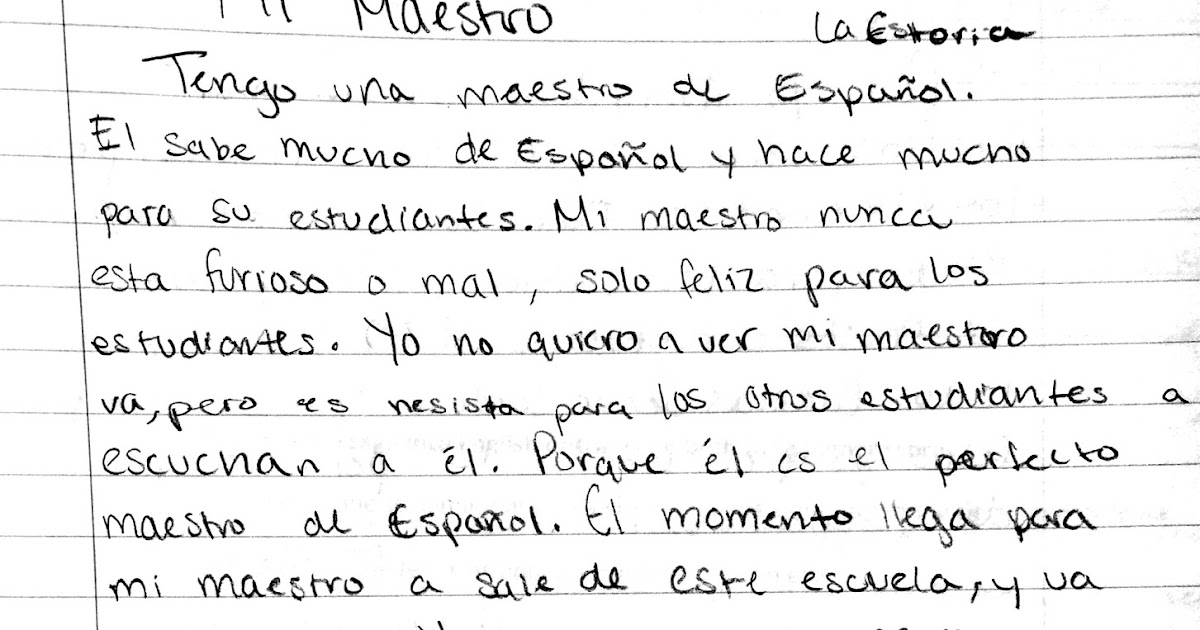 Mi Maestro La Estoria
Tengo una maestro de Español.
El sabe mucho de Español y hace mucho
para su estudiantes. Mi maestro nunca
esta furioso o mal, solo feliz para los
estudiantes. Yo no quiero a ver mi maestro
va, pero es nesista para los otros estudiantes a
escuchan a él. Porque él es el perfecto
maestro de Español. El momento llega para
mi maestro a sale de este escuela, y va